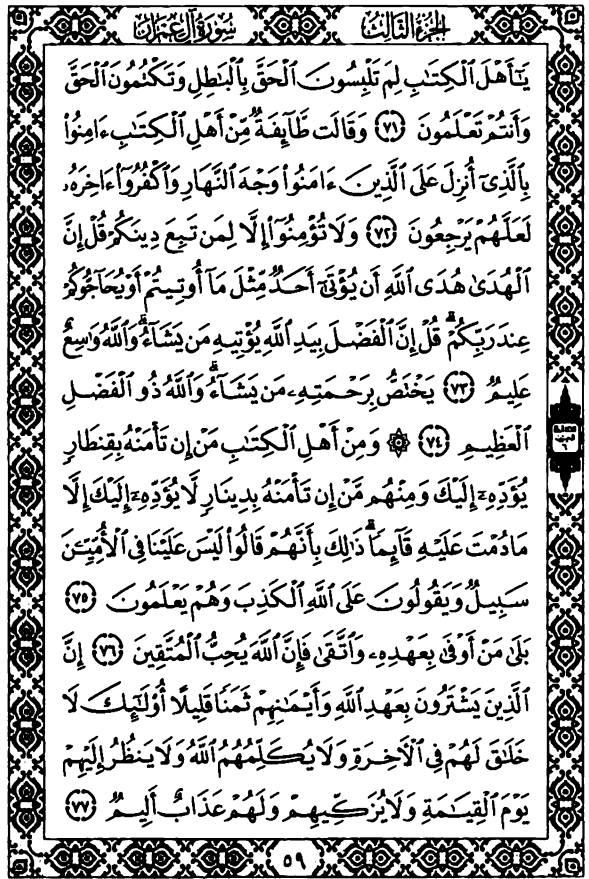 سُورَةُ آلِ عِمْرَانَ
الجُزْءُ الثَّالِثُ
يَـٰٓأَهْلَ ٱلْكِتَـٰبِ لِمَ تَلْبِسُونَ ٱلْحَقَّ بِٱلْبَـٰطِلِ وَتَكْتُمُونَ ٱلْحَقَّ
وَأَنتُمْ تَعْلَمُونَ ٧١ وَقَالَت طَّآئِفَةٌ مِّنْ أَهْلِ ٱلْكِتَـٰبِ ءَامِنُوا۟
بِٱلَّذِىٓ أُنزِلَ عَلَى ٱلَّذِينَ ءَامَنُوا۟ وَجْهَ ٱلنَّهَارِ وَٱكْفُرُوٓا۟ ءَاخِرَهُۥ
لَعَلَّهُمْ يَرْجِعُونَ ٧٢ وَلَا تُؤْمِنُوٓا۟ إِلَّا لِمَن تَبِعَ دِينَكُمْ قُلْ إِنَّ
ٱلْهُدَىٰ هُدَى ٱللَّهِ أَن يُؤْتَىٰٓ أَحَدٌ مِّثْلَ مَآ أُوتِيتُمْ أَوْ يُحَآجُّوكُمْ
عِندَ رَبِّكُمْ ۗ قُلْ إِنَّ ٱلْفَضْلَ بِيَدِ ٱللَّهِ يُؤْتِيهِ مَن يَشَآءُ ۗ وَٱللَّهُ وَٰسِعٌ
عَلِيمٌ ٧٣ يَخْتَصُّ بِرَحْمَتِهِۦ مَن يَشَآءُ ۗ وَٱللَّهُ ذُو ٱلْفَضْلِ
ٱلْعَظِيمِ ٧٤ ۞ وَمِنْ أَهْلِ ٱلْكِتَـٰبِ مَنْ إِن تَأْمَنْهُ بِقِنطَارٍ
يُؤَدِّهِۦٓ إِلَيْكَ وَمِنْهُم مَّنْ إِن تَأْمَنْهُ بِدِينَارٍ لَّا يُؤَدِّهِۦٓ إِلَيْكَ إِلَّا
مَا دُمْتَ عَلَيْهِ قَآئِمًا ۗ ذَٰلِكَ بِأَنَّهُمْ قَالُوا۟ لَيْسَ عَلَيْنَا فِى ٱلْأُمِّيِّـۧنَ
سَبِيلٌ وَيَقُولُونَ عَلَى ٱللَّهِ ٱلْكَذِبَ وَهُمْ يَعْلَمُونَ ٧٥
بَلَىٰ مَنْ أَوْفَىٰ بِعَهْدِهِۦ وَٱتَّقَىٰ فَإِنَّ ٱللَّهَ يُحِبُّ ٱلْمُتَّقِينَ ٧٦ إِنَّ
ٱلَّذِينَ يَشْتَرُونَ بِعَهْدِ ٱللَّهِ وَأَيْمَـٰنِهِمْ ثَمَنًا قَلِيلًا أُو۟لَـٰٓئِكَ لَا
خَلَـٰقَ لَهُمْ فِى ٱلْـَٔاخِرَةِ وَلَا يُكَلِّمُهُمُ ٱللَّهُ وَلَا يَنظُرُ إِلَيْهِمْ
يَوْمَ ٱلْقِيَـٰمَةِ وَلَا يُزَكِّيهِمْ وَلَهُمْ عَذَابٌ أَلِيمٌ ٧٧
٥٩